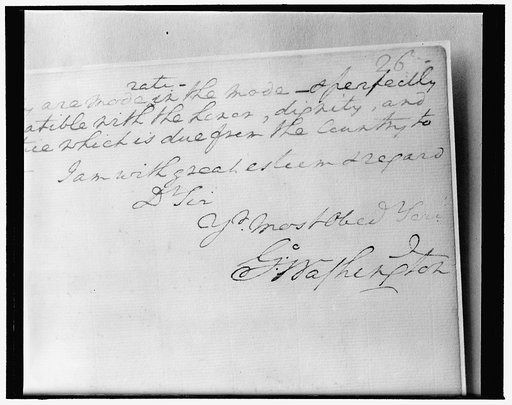 26
rati-
y are made in the mode - & perfectly
atible with the honor, dignity, and
tice which is due from the Country to
I am with great esteem & regard
Dr Sir
Yr. most Obed Ser.
Go: Washington